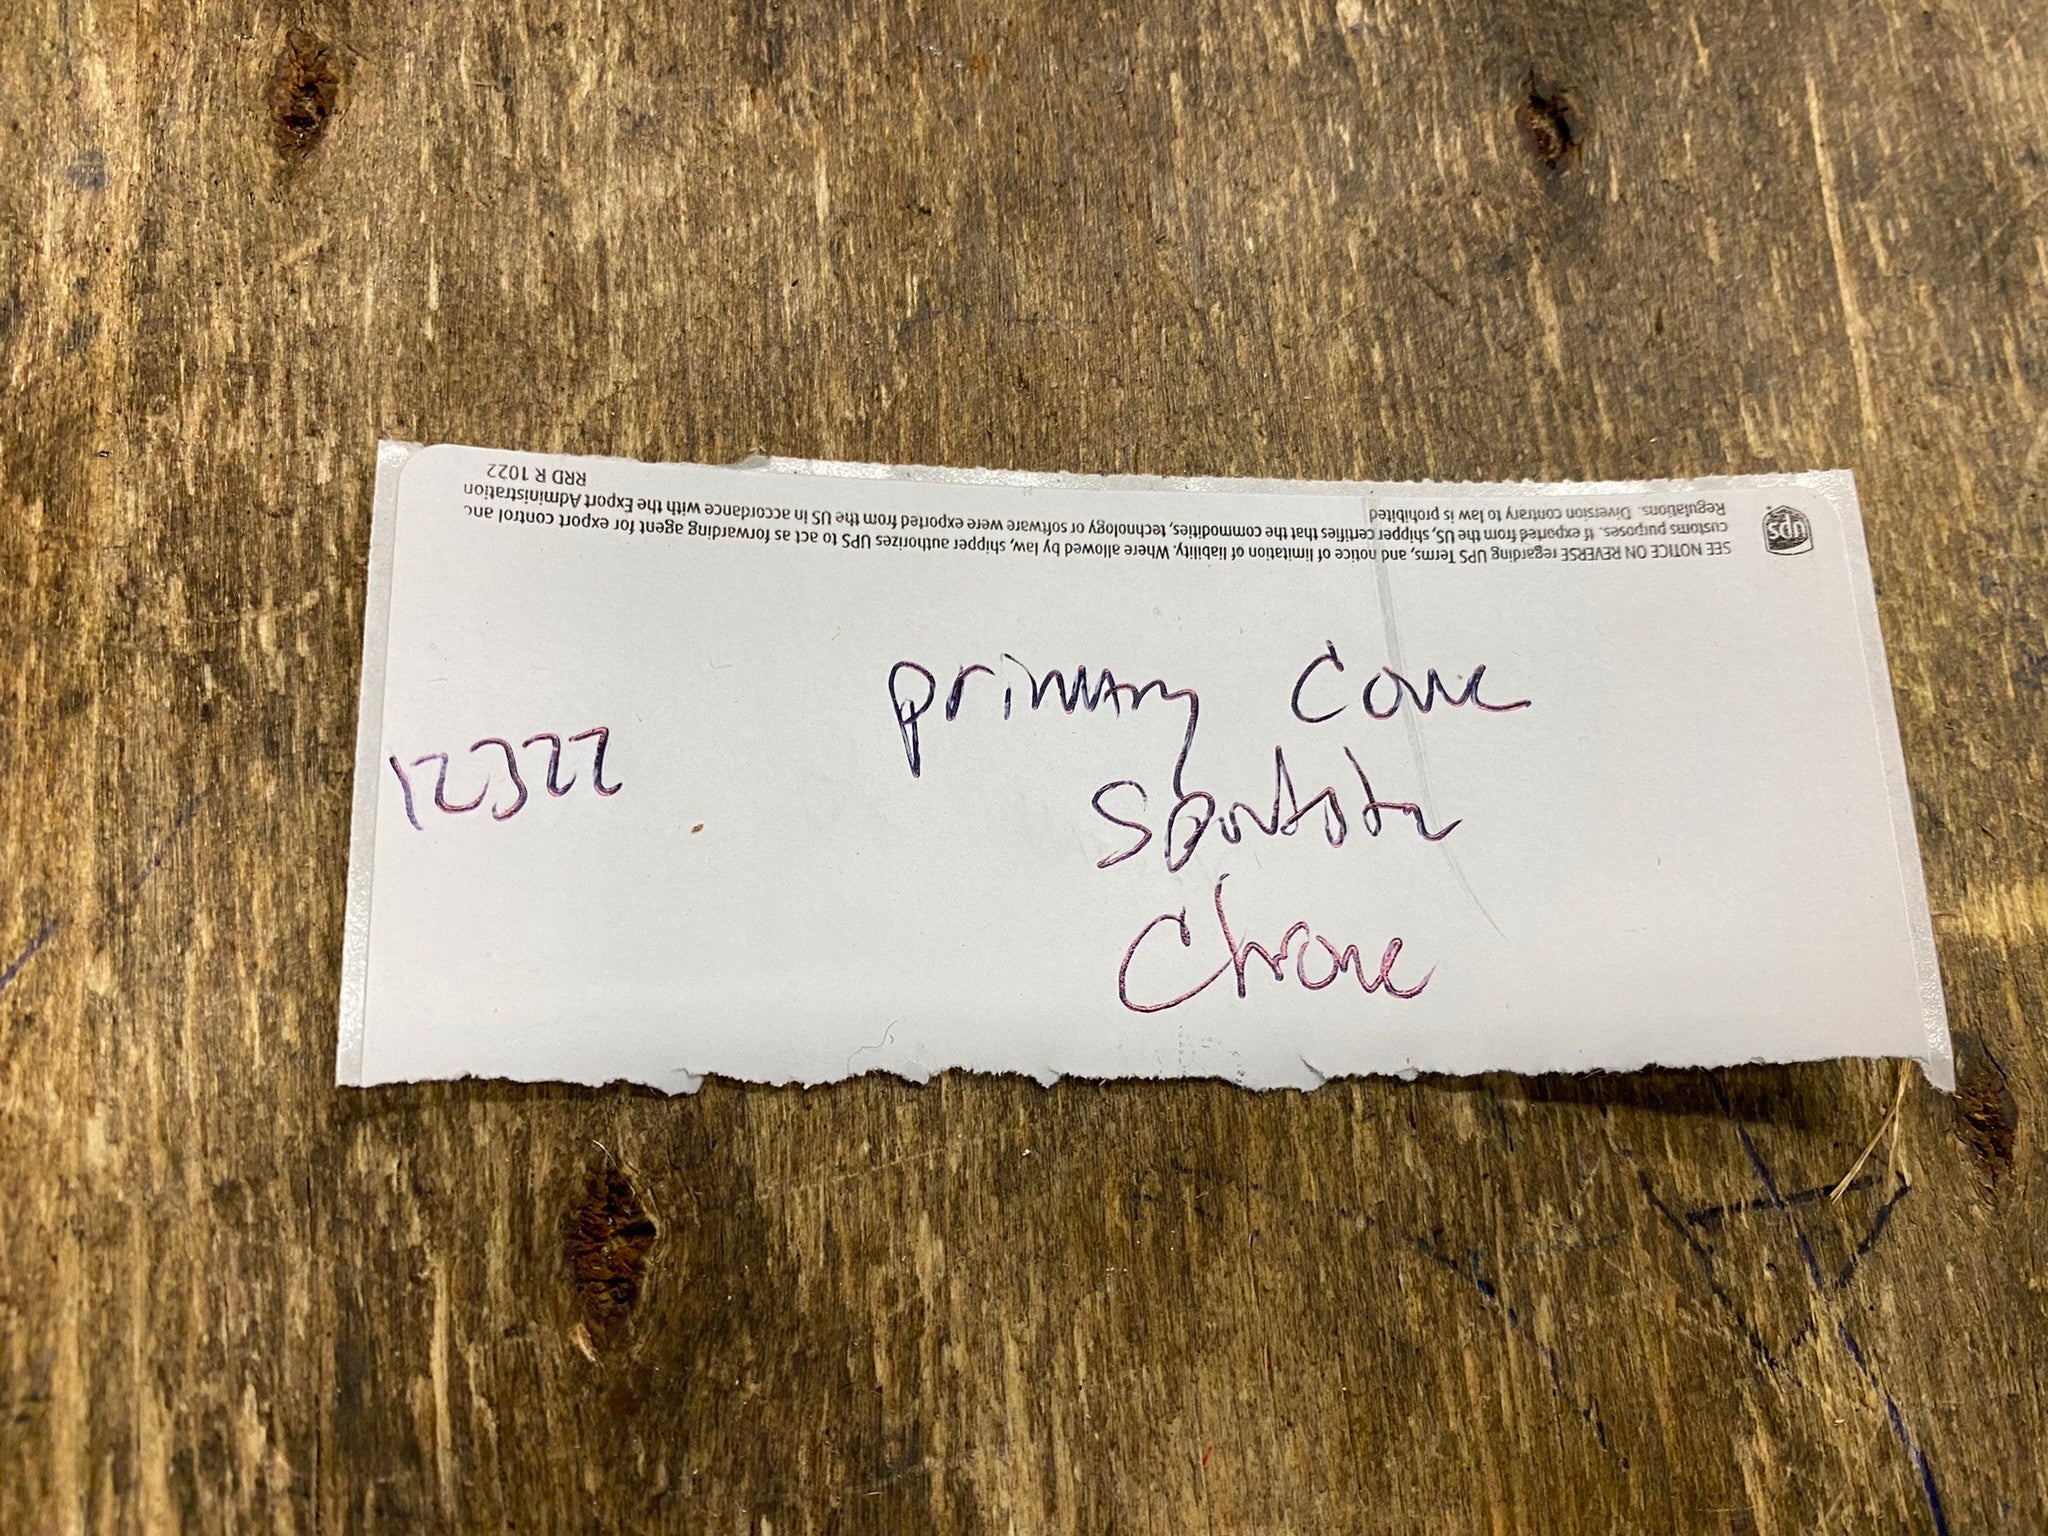 RRD R 1022
SEE NOTICE ON REVERSE regarding UPS Terms, and notice of limitation of liability. Where allowed by law, shipper authorizes UPS to act as forwarding agent for export control and
customs purposes. If exported from the US, shipper certifies that the commodities, technology or software were exported from the US in accordance with the Export Administration
Regulations. Diversion contrary to law is prohibited
ups
primary Cove
12322
Sportster
Chrome